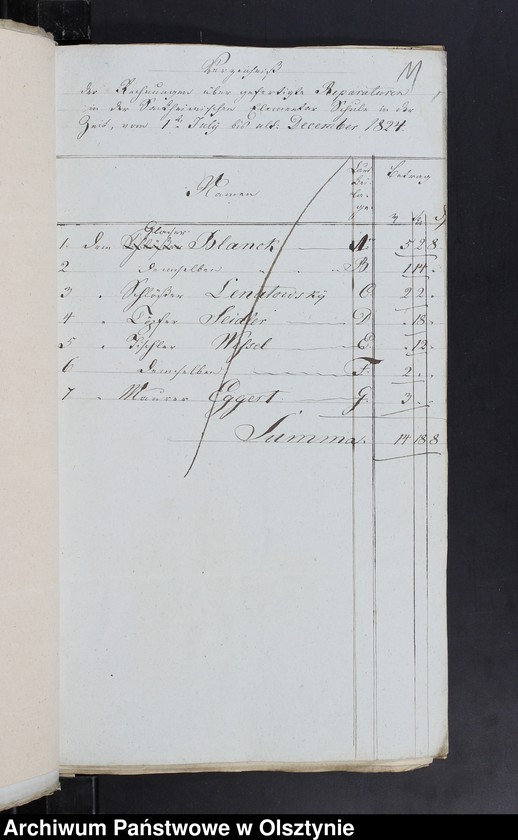 Verzeichniß
der Rechnungen über gefertigte Reparaturen
in der Sackheimschen Elementar Schule in der
Zeit, vom 1t July bis ult December 1824
Namen
Betrag
1. dem Glaser Blanck A. 5 2 8
2 demselben B. 1 14 .
3 " Schlößer Lenatowsky C. 2 2 .
4 " Töpfer Seidler D. . 18 .
5 " Tischler Wessel E. . 12 .
6 demselben F. 2 . .
7 " Maurer Eggert G. 3 . .
Summa. 14 18 8
Archiwum Państwowe w Olsztynie